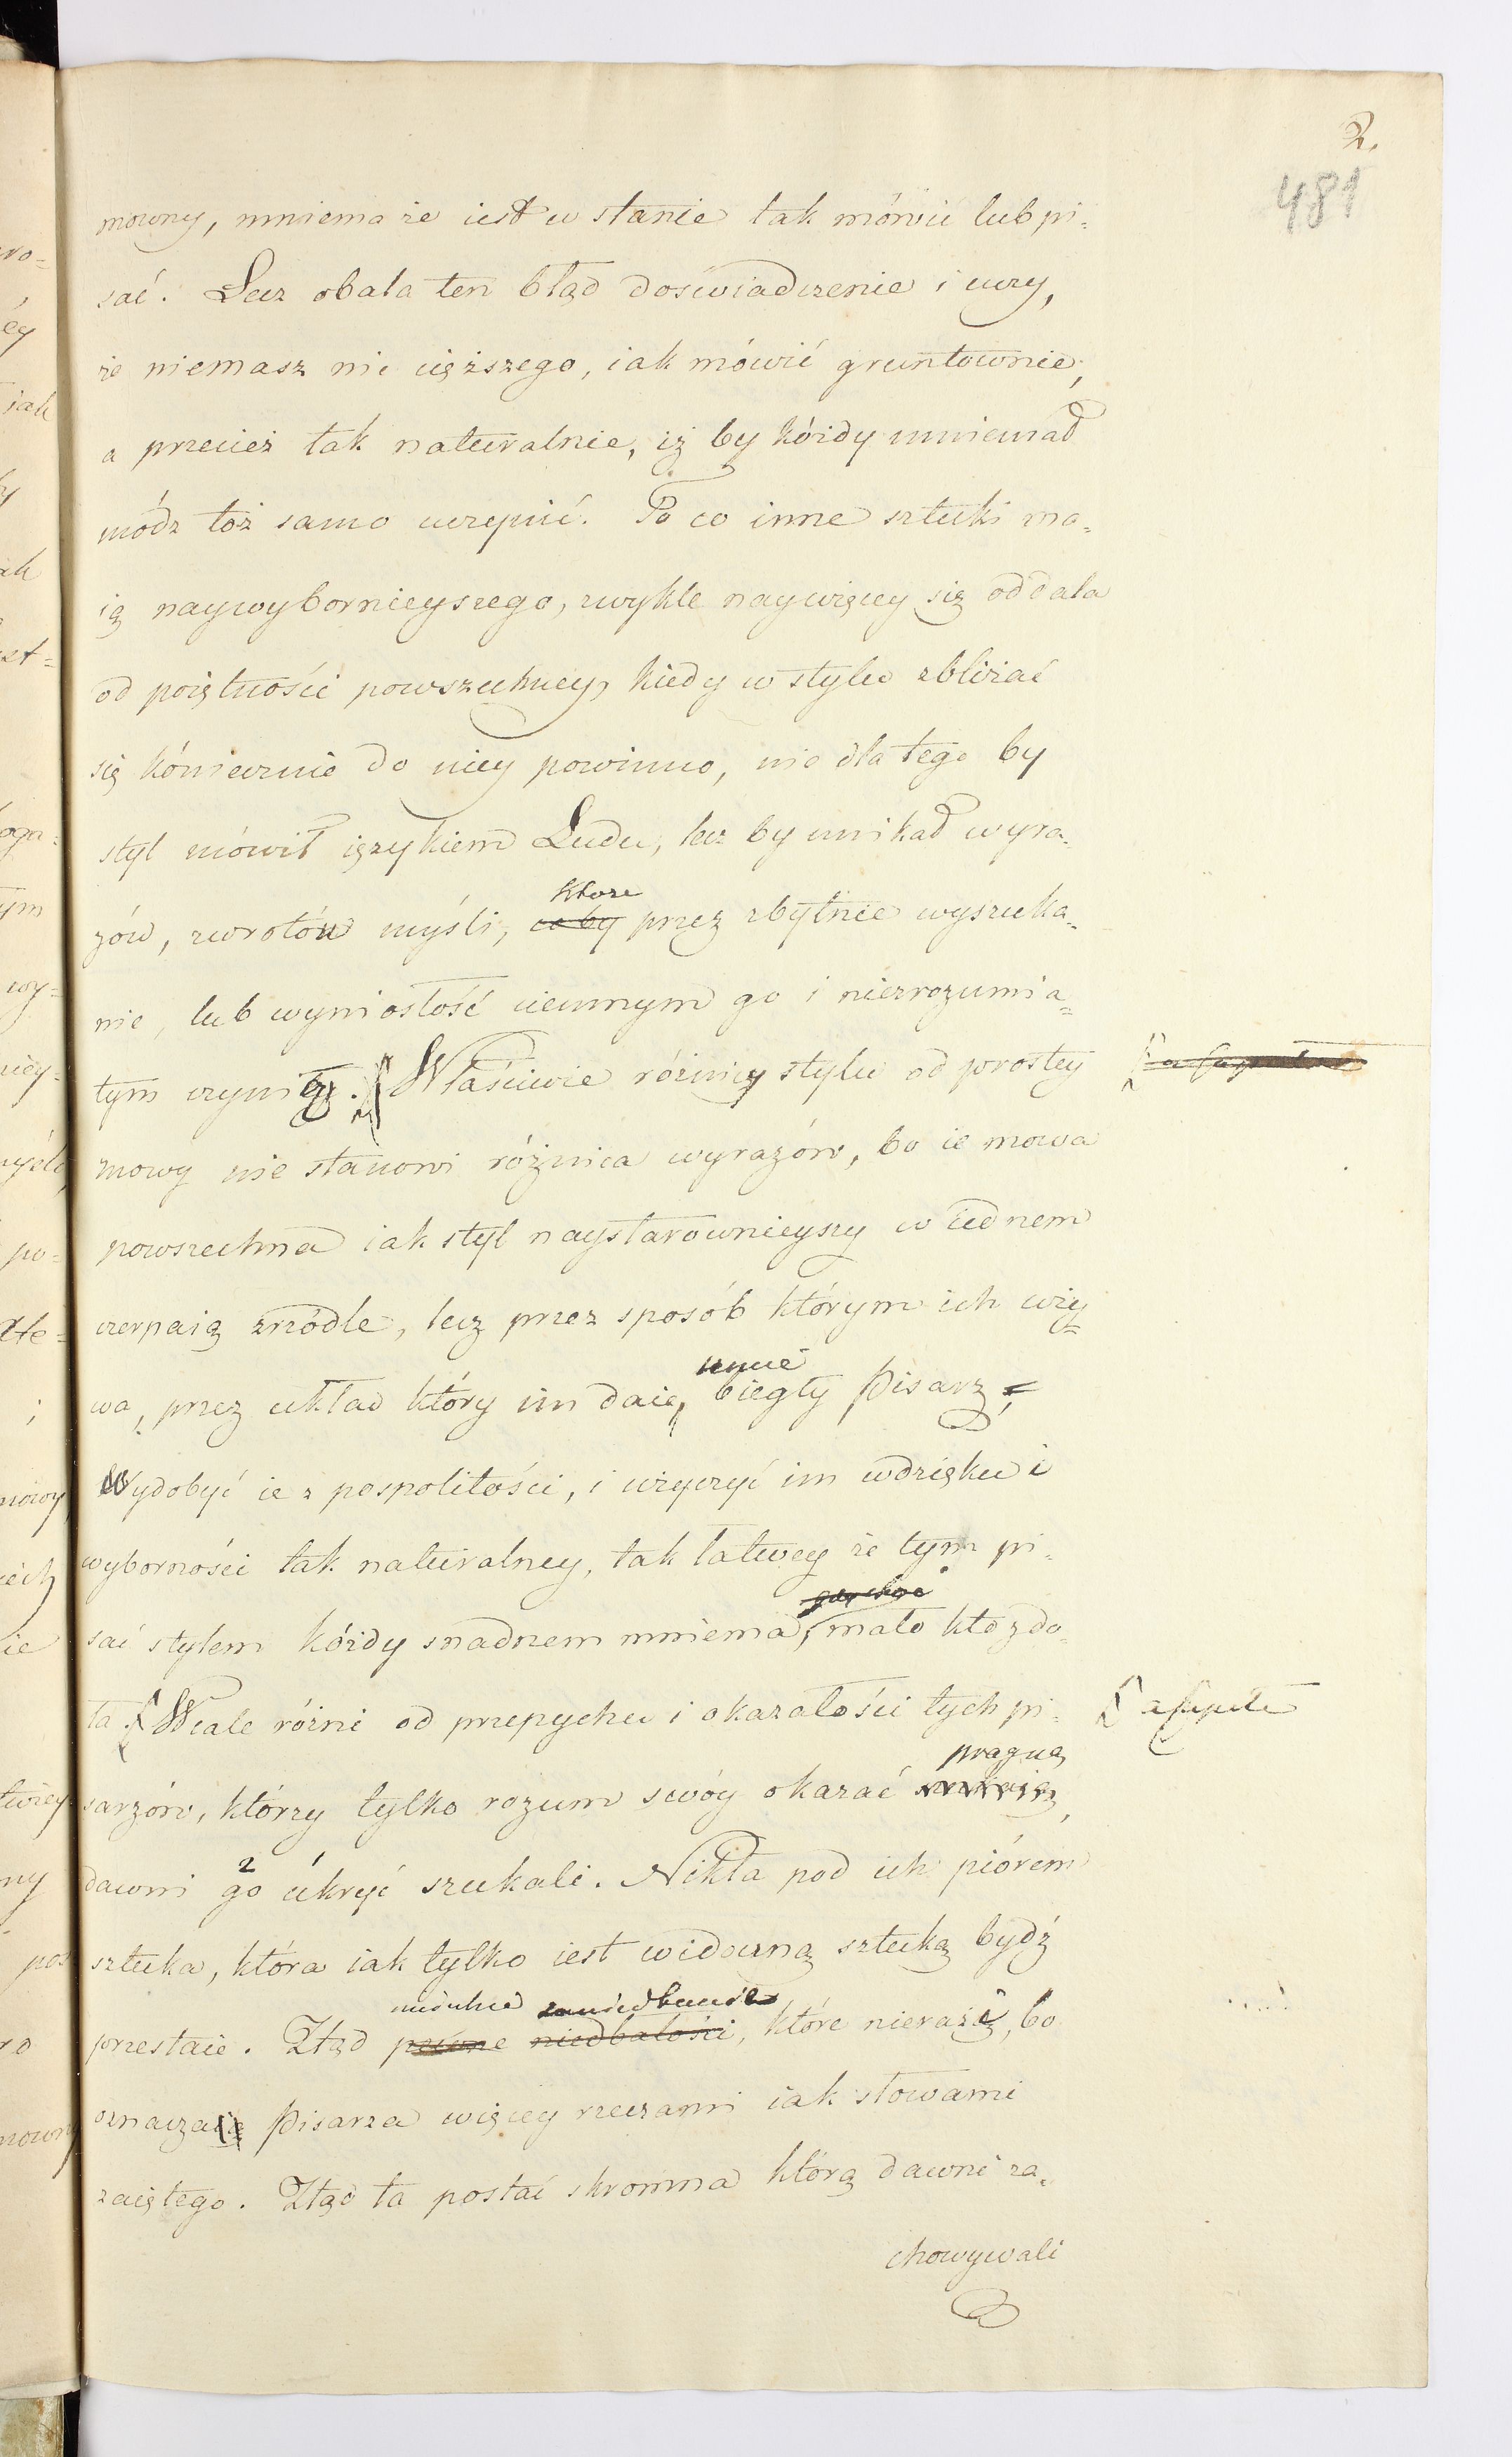 2.
481
mowny, mniema że iest w stanie tak mówić lub pi=
sać. Lecz obala ten błąd doświadczenie i uczy,
że niemasz nic cięższego, iak mówić gruntownie,
a przecież tak naturalnie, iż by kóżdy mniemał
módz toż samo uczynić. To co inne sztuki ma=
ią naywybornieyszego, zwykle naywięcey się oddala
od poiętności powszechney, kiedy w stylu zbliżać
się kóniecznie do niey powinno, nie dla tego by
styl mówił ięzykiem Ludu, lecz by unikał wyra=
które
zów, zwrotów myśli, co by przez zbytnie wyszuka=
nie, lub wyniosłość ciemnym go i niezrozumia=
łym czynią. Właściwie różnicy stylu od prostey
mowy nie stanowi różnica wyrazów, bo ie mowa
powszechna iak styl naystarownieyszy w iednem
czerpaią zrzódle, lecz przez sposób którym ich uży=
umie
wa, przez układ który im daie, biegły Pisarz
Wydobyć ie z pospolitości, i użyczyć im wdzięku i
wyborności tak naturalney, tak łatwey że tym pi=
sać stylem kóżdy snadnem mniema, mało kto zdo=
ła. Wcale różni od przepychu i okazałości tych pi=
a capite
pragną
sarzów, którzy tylko rozum swóy okazać
2
dawni go ukryć szukali. Nikła pod ich piórem
sztuka, która iak tylko iest widoczną sztuką bydź
zaniedbanie
przestaie. Ztąd pewne niedbałości, które nieraża, bo
oznacza Pisarza więcey rzeczami iak słowami
zaiętego. Ztąd ta postać skromna którą dawni za=
chowywali